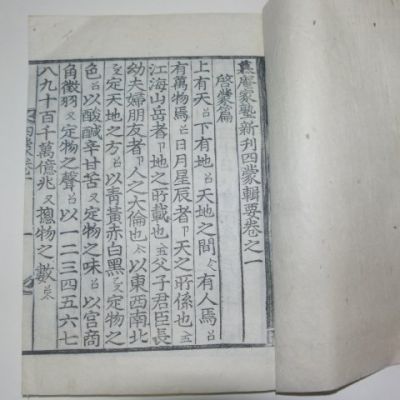 家塾新刊四蒙輯要卷之一
啓蒙篇
上有天下有地天地之間有人焉
有萬物焉日月星辰者天之所係也
江海山岳者地之所載也父子君臣長
幼夫婦朋友者人之大倫也以東西南北
定天地之方以靑黃赤白黑定物之
色以酸鹹辛甘苦定物之味以宮商
角徵羽定物之聲以一二三四五六七
八九十百千萬億兆摠物之數